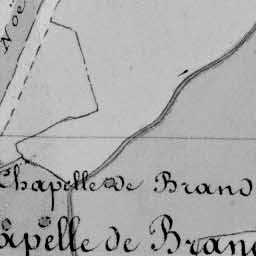 Noë
Chapelle de Brand
apelle de Bran